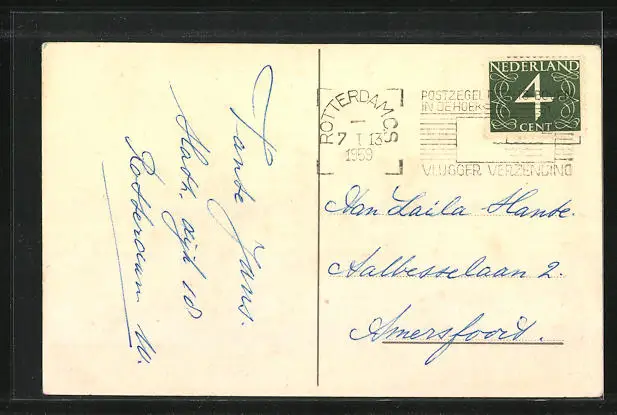 Tante Jans.
Math. dijk 18
Rotterdam W.
NEDERLAND
4
CENT
ROTTERDAM C.S
7 I 13
1959
POSTZEGEL
IN DE HOEK
VLUGGER VERZENDING
Aan Laila Hante.
Aalbesselaan 2.
Amersfoort.